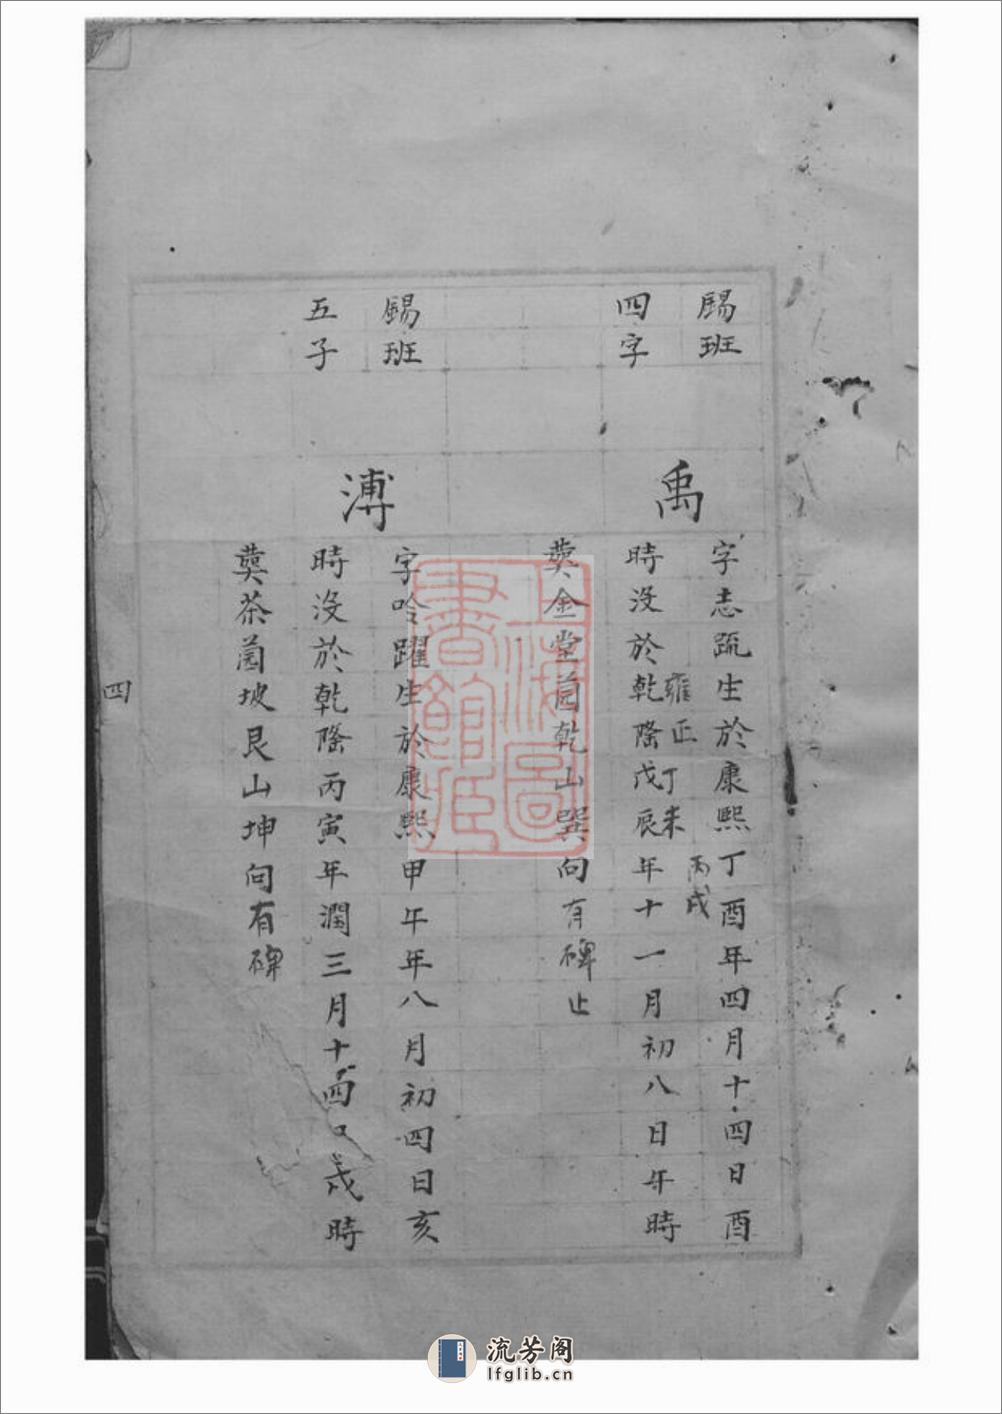 錫班
四字
禹
字志䟽生於康熙丁酉年四月十四日酉
丙戌
雍正丁未
時没於乾隆戊辰年十一月初八日午時
葬金堂茵乾山巽向有碑止
錫班
五子
溥
字吟躍生於康熙甲午年八月初四日亥
時没於乾隆丙寅年潤三月十四日戌時
葬茶茵坡艮山坤向有碑
四
上海圖書館藏
流芳阁
lfglib.cn